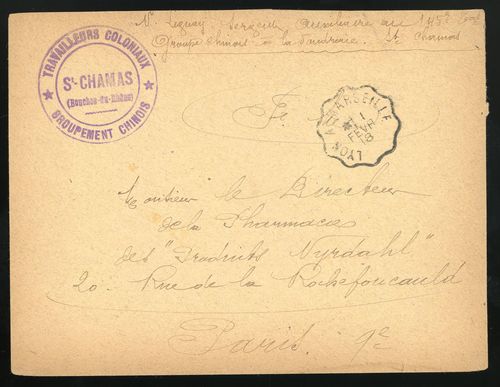 Sergent Auxiliaire au 113e
Groupe Chinois à la Poudrerie. St Chamas
★ TRAVAILLEURS COLONIAUX ★
St-CHAMAS
(Bouches-du-Rhône)
GROUPEMENT CHINOIS
LYON A MARSEILLE
1
FEVR
18
Monsieur le Directeur
de la Pharmacie
des "Produits Nyrdahl"
20. Rue de la Rochefoucauld
Paris. 9e